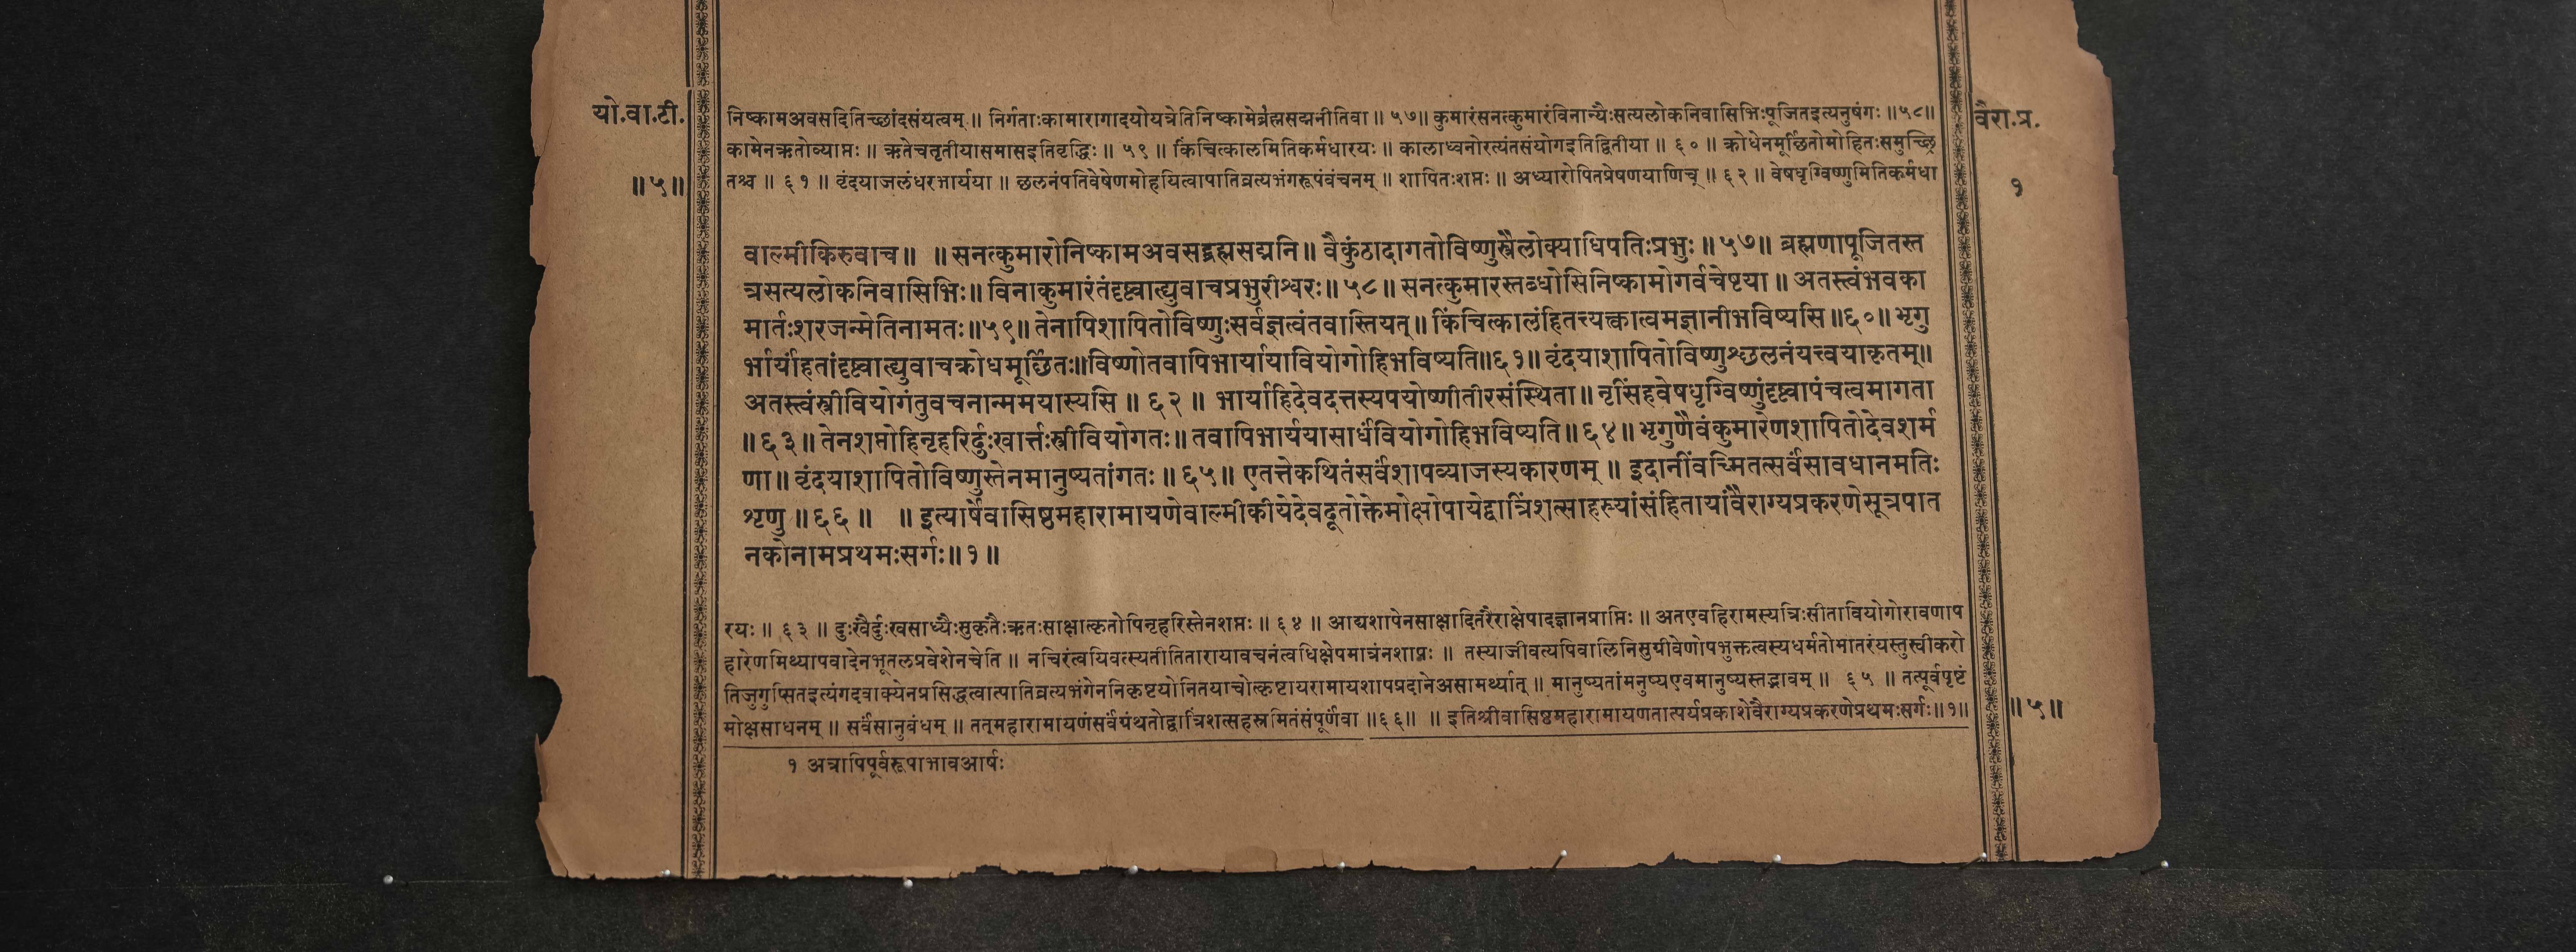 यो.वा.टी.
॥५॥
निष्कामअवसदितिच्छांदसंयत्वम् ॥ निर्गताःकामारागादयोयत्रेतिनिष्कामेर्ब्रह्मसद्मनीतिवा ॥ ५७॥ कुमारंसनत्कुमारंविनान्यैःसत्यलोकनिवासिभिःपूजितइत्यनुषंगः ॥५८॥
कामेनऋतोव्याप्तः ॥ ऋतेचतृतीयासमासइतिवृद्धिः ॥ ५९ ॥ किंचित्कालमितिकर्मधारयः ॥ कालाध्वनोरत्यंतसंयोगइतिद्वितीया ॥ ६० ॥ क्रोधेनमूर्छितोमोहितःसमुच्छ्रि
तश्च ॥ ६१ ॥ वृंदयाजलंधरभार्यया ॥ छलनंपतिवेषेणमोहयित्वापातिव्रत्यभंगरूपंवंचनम् ॥ शापितःशप्तः ॥ अध्यारोपितप्रेषणयाणिच् ॥ ६२ ॥ वेषधृग्विष्णुमितिकर्मधा
वैरा.प्र.
१
वाल्मीकिरुवाच॥ ॥ सनत्कुमारोनिष्कामअवसद्ब्रह्मसद्मनि॥ वैकुंठादागतोविष्णुस्त्रैलोक्याधिपतिःप्रभुः॥५७॥ ब्रह्मणापूजितस्त
त्रसत्यलोकनिवासिभिः॥ विनाकुमारंतंदृष्ट्वाह्युवाचप्रभुरीश्वरः॥५८॥ सनत्कुमारस्तब्धोसिनिष्कामोगर्वचेष्टया॥ अतस्त्वंभवका
मार्तःशरजन्मेतिनामतः॥५९॥ तेनापिशापितोविष्णुःसर्वज्ञत्वंतवास्तियत्॥ किंचित्कालंहितत्त्यक्त्वात्वमज्ञानीभविष्यसि॥६०॥ भृगु
र्भार्यांहतांदृष्ट्वाह्युवाचक्रोधमूर्छितः॥विष्णोतवापिभार्यायावियोगोहिभविष्यति॥६१॥ वृंदयाशापितोविष्णुश्छलनंयत्त्वयाकृतम्॥
अतस्त्वंस्त्रीवियोगंतुवचनान्ममयास्यसि॥ ६२॥ भार्याहिदेवदत्तस्यपयोष्णीतीरसंस्थिता॥ नृसिंहवेषधृग्विष्णुंदृष्ट्वापंचत्वमागता
॥६३॥ तेनशप्तोहिनृहरिर्दुःखार्त्तःस्त्रीवियोगतः॥ तवापिभार्ययासार्धंवियोगोहिभविष्यति॥६४॥ भृगुणैवंकुमारेणशापितोदेवशर्म
णा॥ वृंदयाशापितोविष्णुस्तेनमानुष्यतांगतः॥६५॥ एतत्तेकथितंसर्वंशापव्याजस्यकारणम्॥ इदानींवच्मितत्सर्वंसावधानमतिः
शृणु ॥६६॥ ॥ इत्यार्षेवासिष्ठमहारामायणेवाल्मीकीयेदेवदूतोक्तेमोक्षोपायेद्वात्रिंशत्साहस्र्यांसंहितायांवैराग्यप्रकरणेसूत्रपात
नकोनामप्रथमःसर्गः॥१॥
रयः ॥ ६३ ॥ दुःखैर्दुःखसाध्यैःसुकृतैःऋतःसाक्षात्कृतोपिनृहरिस्तेनशप्तः ॥ ६४ ॥ आद्यशापेनसाक्षादितरैराक्षेपादज्ञानप्राप्तिः ॥ अतएवहिरामस्यत्रिःसीतावियोगोरावणाप
हारेणमिथ्यापवादेनभूतलप्रवेशेनचेति ॥ नचिरंत्वयिवत्स्यतीतितारायावचनंत्वधिक्षेपमात्रंनशापः ॥ तस्याजीवत्यपिवालिनिसुग्रीवेणोपभुक्तत्वस्यधर्मतोमातरंयस्तुस्वीकरो
तिजुगुप्सितइत्यंगदवाक्येनप्रसिद्धत्वात्पातिव्रत्यभंगेननिकृष्टयोनितयाचोत्कृष्टायरामायशापप्रदानेअसामर्थ्यात् ॥ मानुष्यतांमनुष्यएवमानुष्यस्तद्भावम् ॥ ६५ ॥ तत्पूर्वपृष्टं
मोक्षसाधनम् ॥ सर्वंसानुबंधम् ॥ तत्महारामायणंसर्वंग्रंथतोद्वात्रिंशत्सहस्रमितंसंपूर्णंवा ॥६६॥ ॥ इतिश्रीवासिष्ठमहारामायणतात्पर्यप्रकाशेवैराग्यप्रकरणेप्रथमःसर्गः॥१॥
॥५॥
१ अत्रापिपूर्वरूपाभावआर्षः